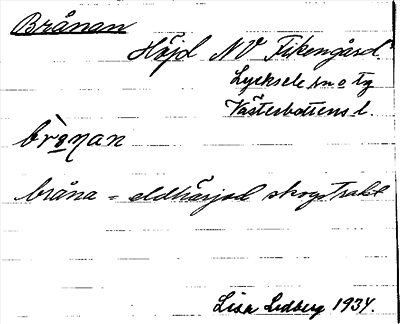 Brånan
Höjd NV Fikengård.
Lycksele sn o tg
Västerbottens l.
bråna = eldhärjad skogstrakt
Lisa Lidberg 1934.